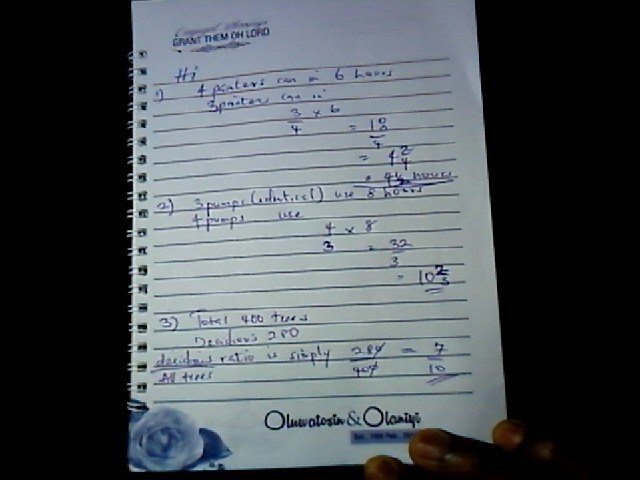 GRANT THEM OH LORD
Hi
1) 4 painters can in 6 hours
3 painters can in
3/4 × 6
= 18/4
= 4 2/4
= 4½ hours
2) 3 pumps (identical) use 8 hours
4 pumps use
4 × 8
3 = 32/3
= 10 2/3
3) Total 400 trees
Decidious 280
decidious ratio is simply 280/400 = 7/10
All trees
Oluwatosin & Olaniyi